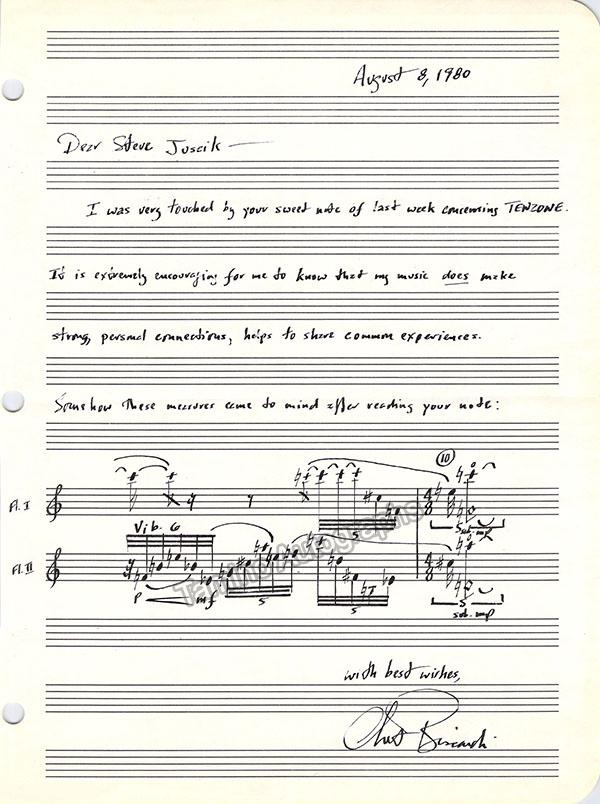 August 8, 1980
Dear Steve Juscik —
I was very touched by your sweet note of last week concerning TENZONE.
It is extremely encouraging for me to know that my music does make
strong, personal connections, helps to share common experiences.
Somehow these measures came to mind after reading your note:
10
Fl. I
5
4/8
5
sub. mp
Vib. 6
Fl. II
p mf
5
5
4/8
5
sub. mp
Tamino Autographs
with best wishes,
Chet Biscardi